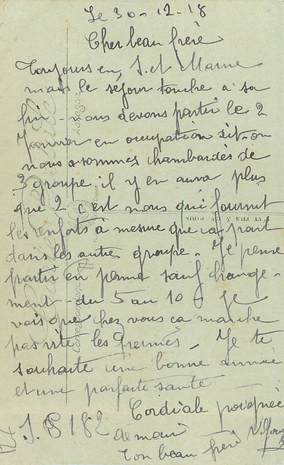 Le 30-12-18
Cher beau frère
Toujours en S. et Marne
mais le séjour touche à sa
fin - nous devons partir le 2
Janvier en occupation dit-on
nous sommes chambardés de
3 groupe, il y en aura plus
que 2 c'est nous qui fournit
les renforts à mesure que ca part
dans les autre groupe. Je pense
partir en perme sauf change-
ment - du 5 au 10 - Je
vois que chez vous ca marche
pas vite les permes. Je te
souhaite une bonne année
et une parfaite santé
Cordiale poignée
de main
Ton beau frère
182